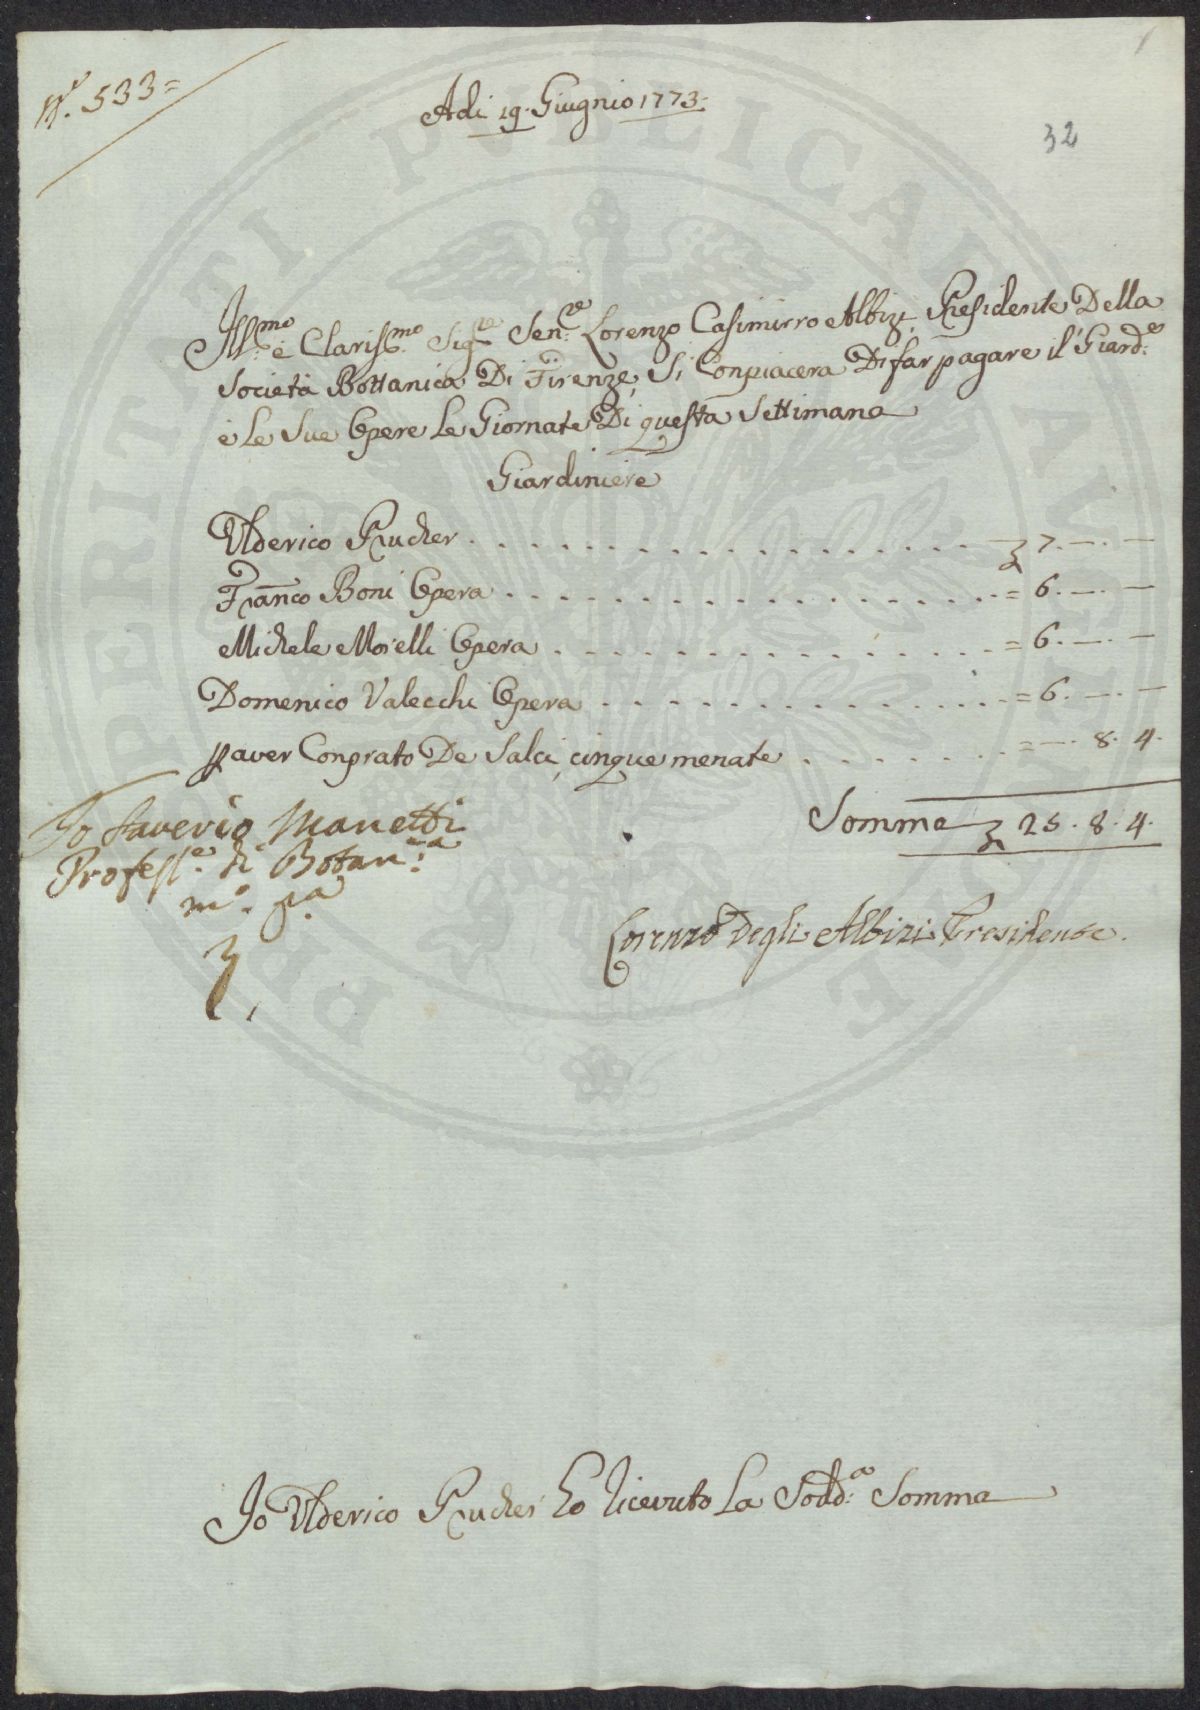 N.º 533=
Adi 19. Giugnio 1773.
32
Ill:mo e Claris:mo Sig:re Sen:re Lorenzo Casimirro Albizi Presidente Della
Società Bottanica Di Firenze, Si Conpiacera Di far pagare il Giard:e
e le Sue Opere le Giornate Di questa Settimana
Giardiniere
Ulderico Prucher . . . . . . . . . . . . . . . . . . 7. —. —
Franco Boni Opera . . . . . . . . . . . . . . . . . = 6. —. —
Michele Morelli Opera . . . . . . . . . . . . . . . = 6. —. —
Domenico Valecchi Opera . . . . . . . . . . . . . = 6. —. —
p aver Conprato De Salci, cinque menate . . . . . . . = —. 8. 4.
Somma 25. 8. 4.
Io Saverio Manetti
Profess:e di Botan:ca
m:o p:a
Lorenzo Degli Albizi Presidente.
Io Ulderico Prucher ho riceuto la Sodd:a Somma
PROPERITATI PVBLICAE AVGENDAE